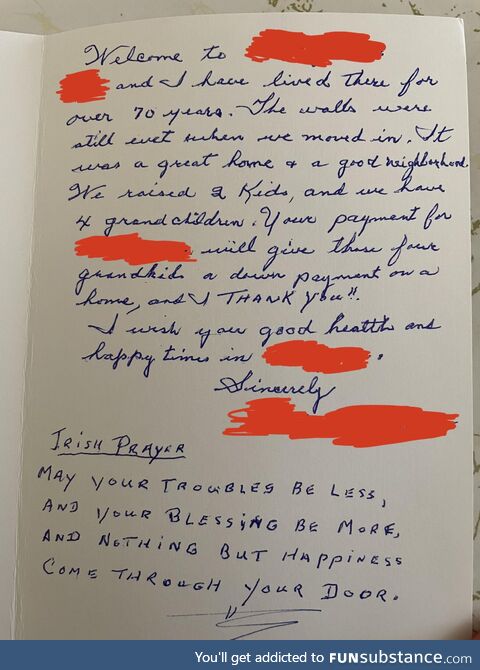 Welcome to
and I have lived there for
over 70 years. The walls were
still wet when we moved in. It
was a great home & a good neighborhood.
We raised 2 Kids, and we have
4 grandchildren. Your payment for
will give those four
grandkids a down payment on a
home, and I THANK YOU!!.
I wish you good health and
happy times in .
Sincerely
IRISH PRAYER
MAY YOUR TROUBLES BE LESS,
AND YOUR BLESSING BE MORE,
AND NOTHING BUT HAPPINESS
COME THROUGH YOUR DOOR.
You'll get addicted to FUNsubstance.com